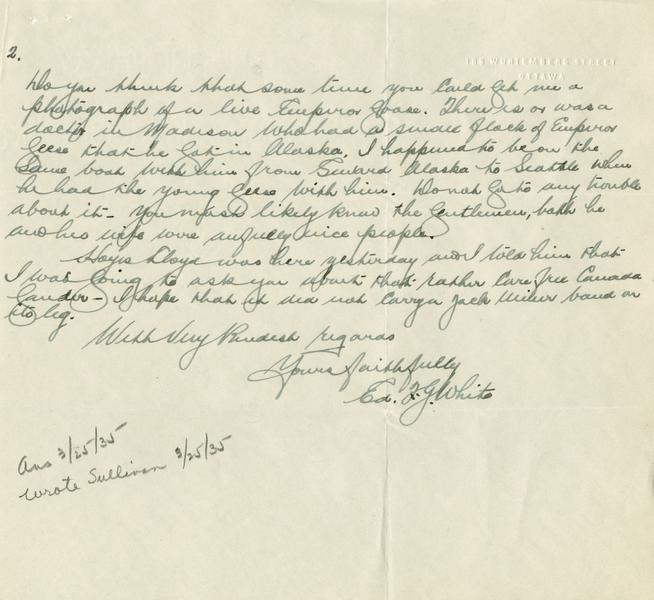 2.
195 WURTEMBERG STREET
OTTAWA
Do you think that some time you could get me a
photograph of a live Emperor Goose. There is or was a
doctor in Madison who had a small flock of Emperor
Geese that he got in Alaska. I happened to be on the
same boat with him from Seward Alaska to Seattle when
he had the young geese with him. Do not go to any trouble
about it - you most likely know the Gentlemen, both he
and his wife were awfully nice people.
Hoyes Lloyd was here yesterday and I told him that
I was going to ask you about that rather care free Canada
Gander - I hope that it did not carry a Jack Miner band on
its leg.
With Very Kindest regards
Yours faithfully
Ed. F.G. White
Ans 3/25/35
Wrote Sullivan 3/25/35